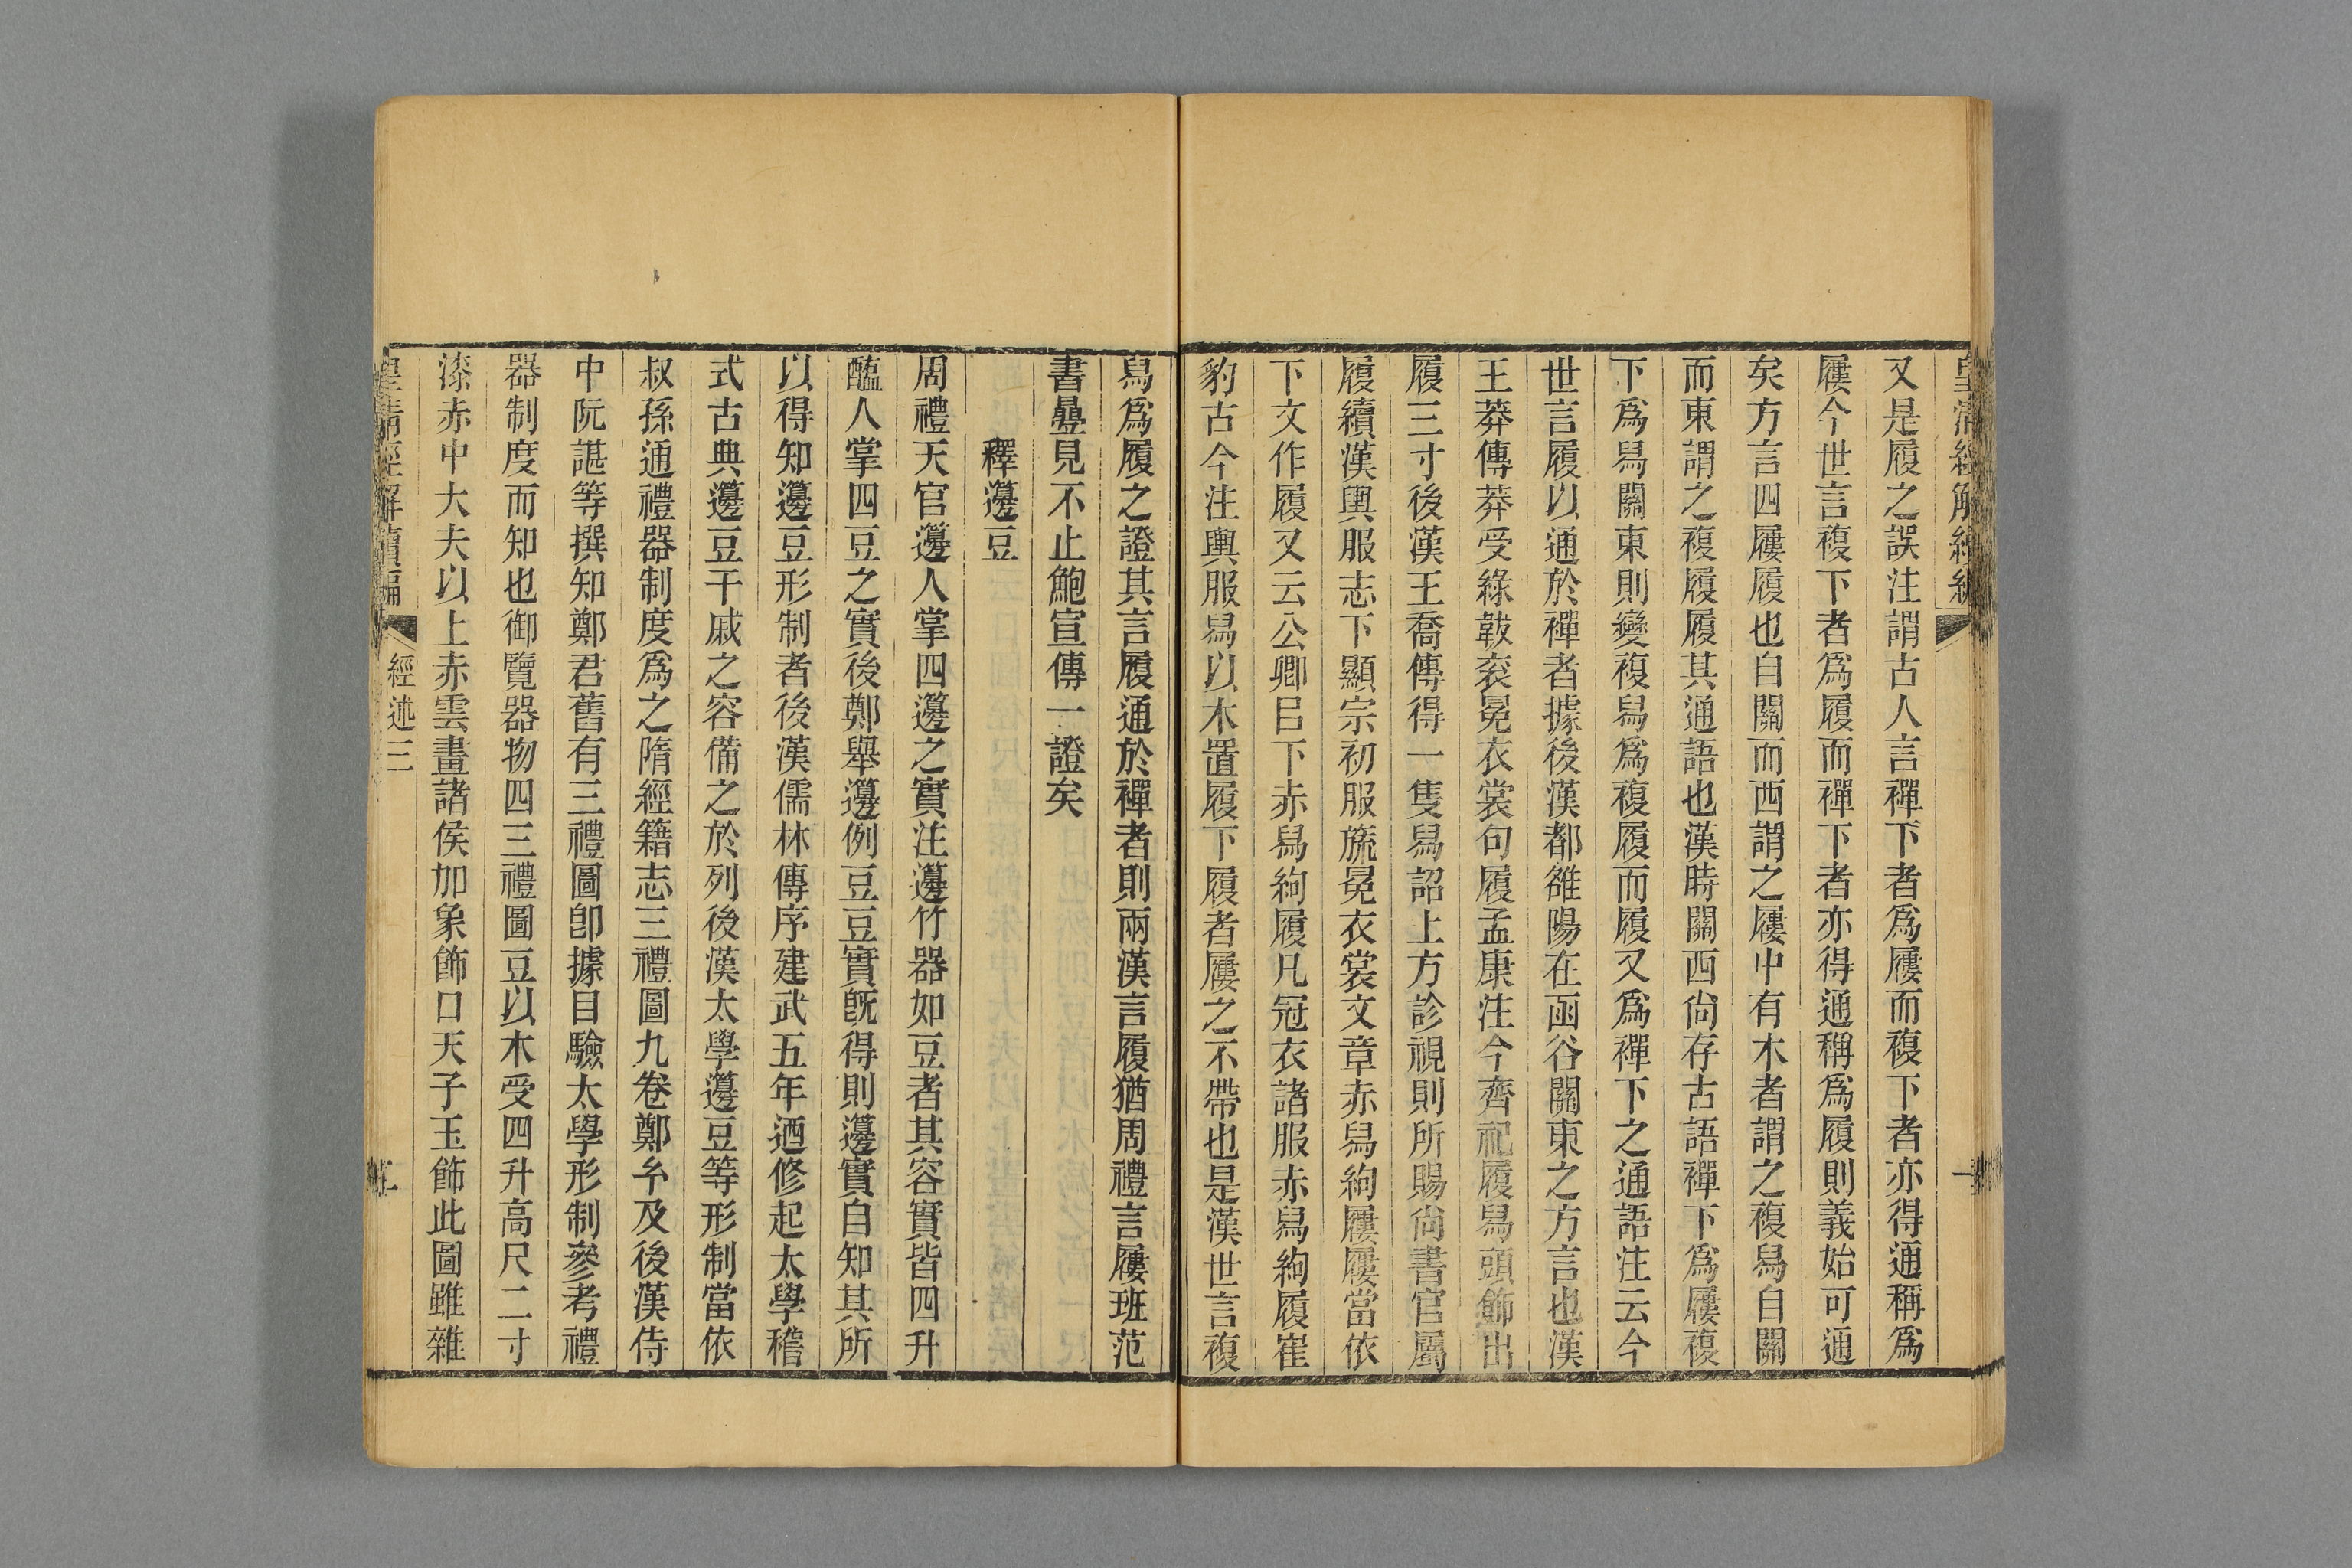 皇清經解續編
又是履之誤注謂古人言襌下者爲屨而複下者亦得通稱爲
屨今世言複下者爲履而襌下者亦得通稱爲履則義始可通
矣方言四屨履也自關而西謂之屨中有木者謂之複舄自關
而東謂之複履履其通語也漢時關西尙存古語襌下爲屨複
下爲舄關東則變複舄爲複履而履又爲襌下之通語注云今
世言履以通於襌者據後漢都雒陽在函谷關東之方言也漢
王莽傳莽受綠韍袞冕衣裳句履孟康注今齊祀履舄頭飾出
履三寸後漢王喬傳得一隻舄詔上方診視則所賜尙書官屬
履續漢輿服志下顯宗初服旒冕衣裳文章赤舄絇屨屨當依
下文作履又云公卿㠯下赤舄絇履凡冠衣諸服赤舄絇履崔
豹古今注輿服舄以木置履下履者屨之不帶也是漢世言複
舄爲履之證其言履通於襌者則兩漢言履猶周禮言屨班范
書曡見不止鮑宣傳一證矣
釋籩豆
周禮天官籩人掌四籩之實注籩竹器如豆者其容實皆四升
醢人掌四豆之實後鄭舉籩例豆豆實旣得則籩實自知其所
以得知籩豆形制者後漢儒林傳序建武五年迺修起太學稽
式古典籩豆干戚之容備之於列後漢太學籩豆等形制當依
叔孫通禮器制度爲之隋經籍志三禮圖九卷鄭𤣥及後漢侍
中阮諶等撰知鄭君舊有三禮圖卽據目驗太學形制參考禮
器制度而知也御覽器物四三禮圖豆以木受四升高尺二寸
漆赤中大夫以上赤雲畫諸侯加象飾口天子玉飾此圖雖雜
皇淸經解續編 經述三